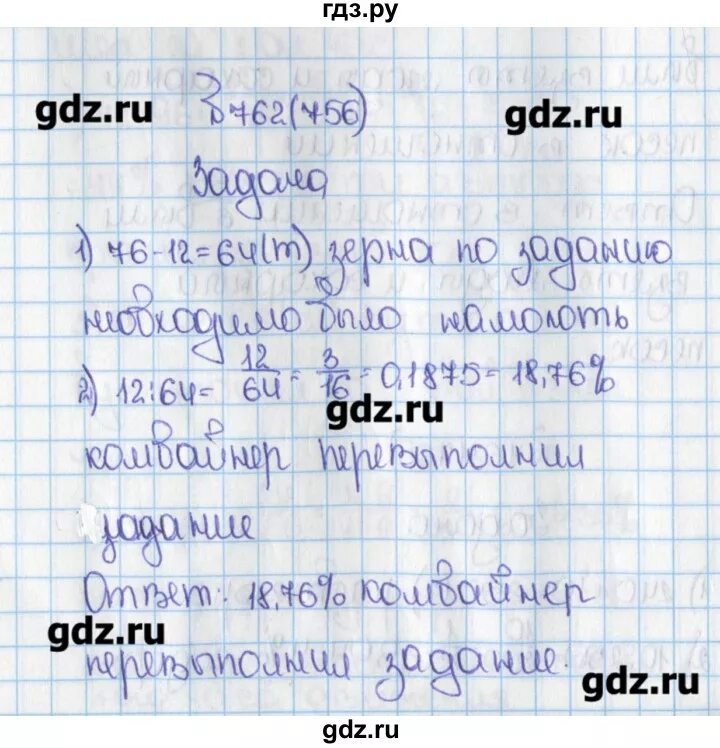 гдз.ру
gdz.ru
№762(756)
gdz.ru
Задача
1) 76-12=64(т) зерна по заданию
необходимо было намолоть
2) 12:64= 12/64 = 3/16 = 0,1875= 18,76%
gdz.ru
комбайнер перевыполнил
задание
Ответ: 18,76% комбайнер
gdz.ru
перевыполнил задание.
gdz.ru
gdz.ru